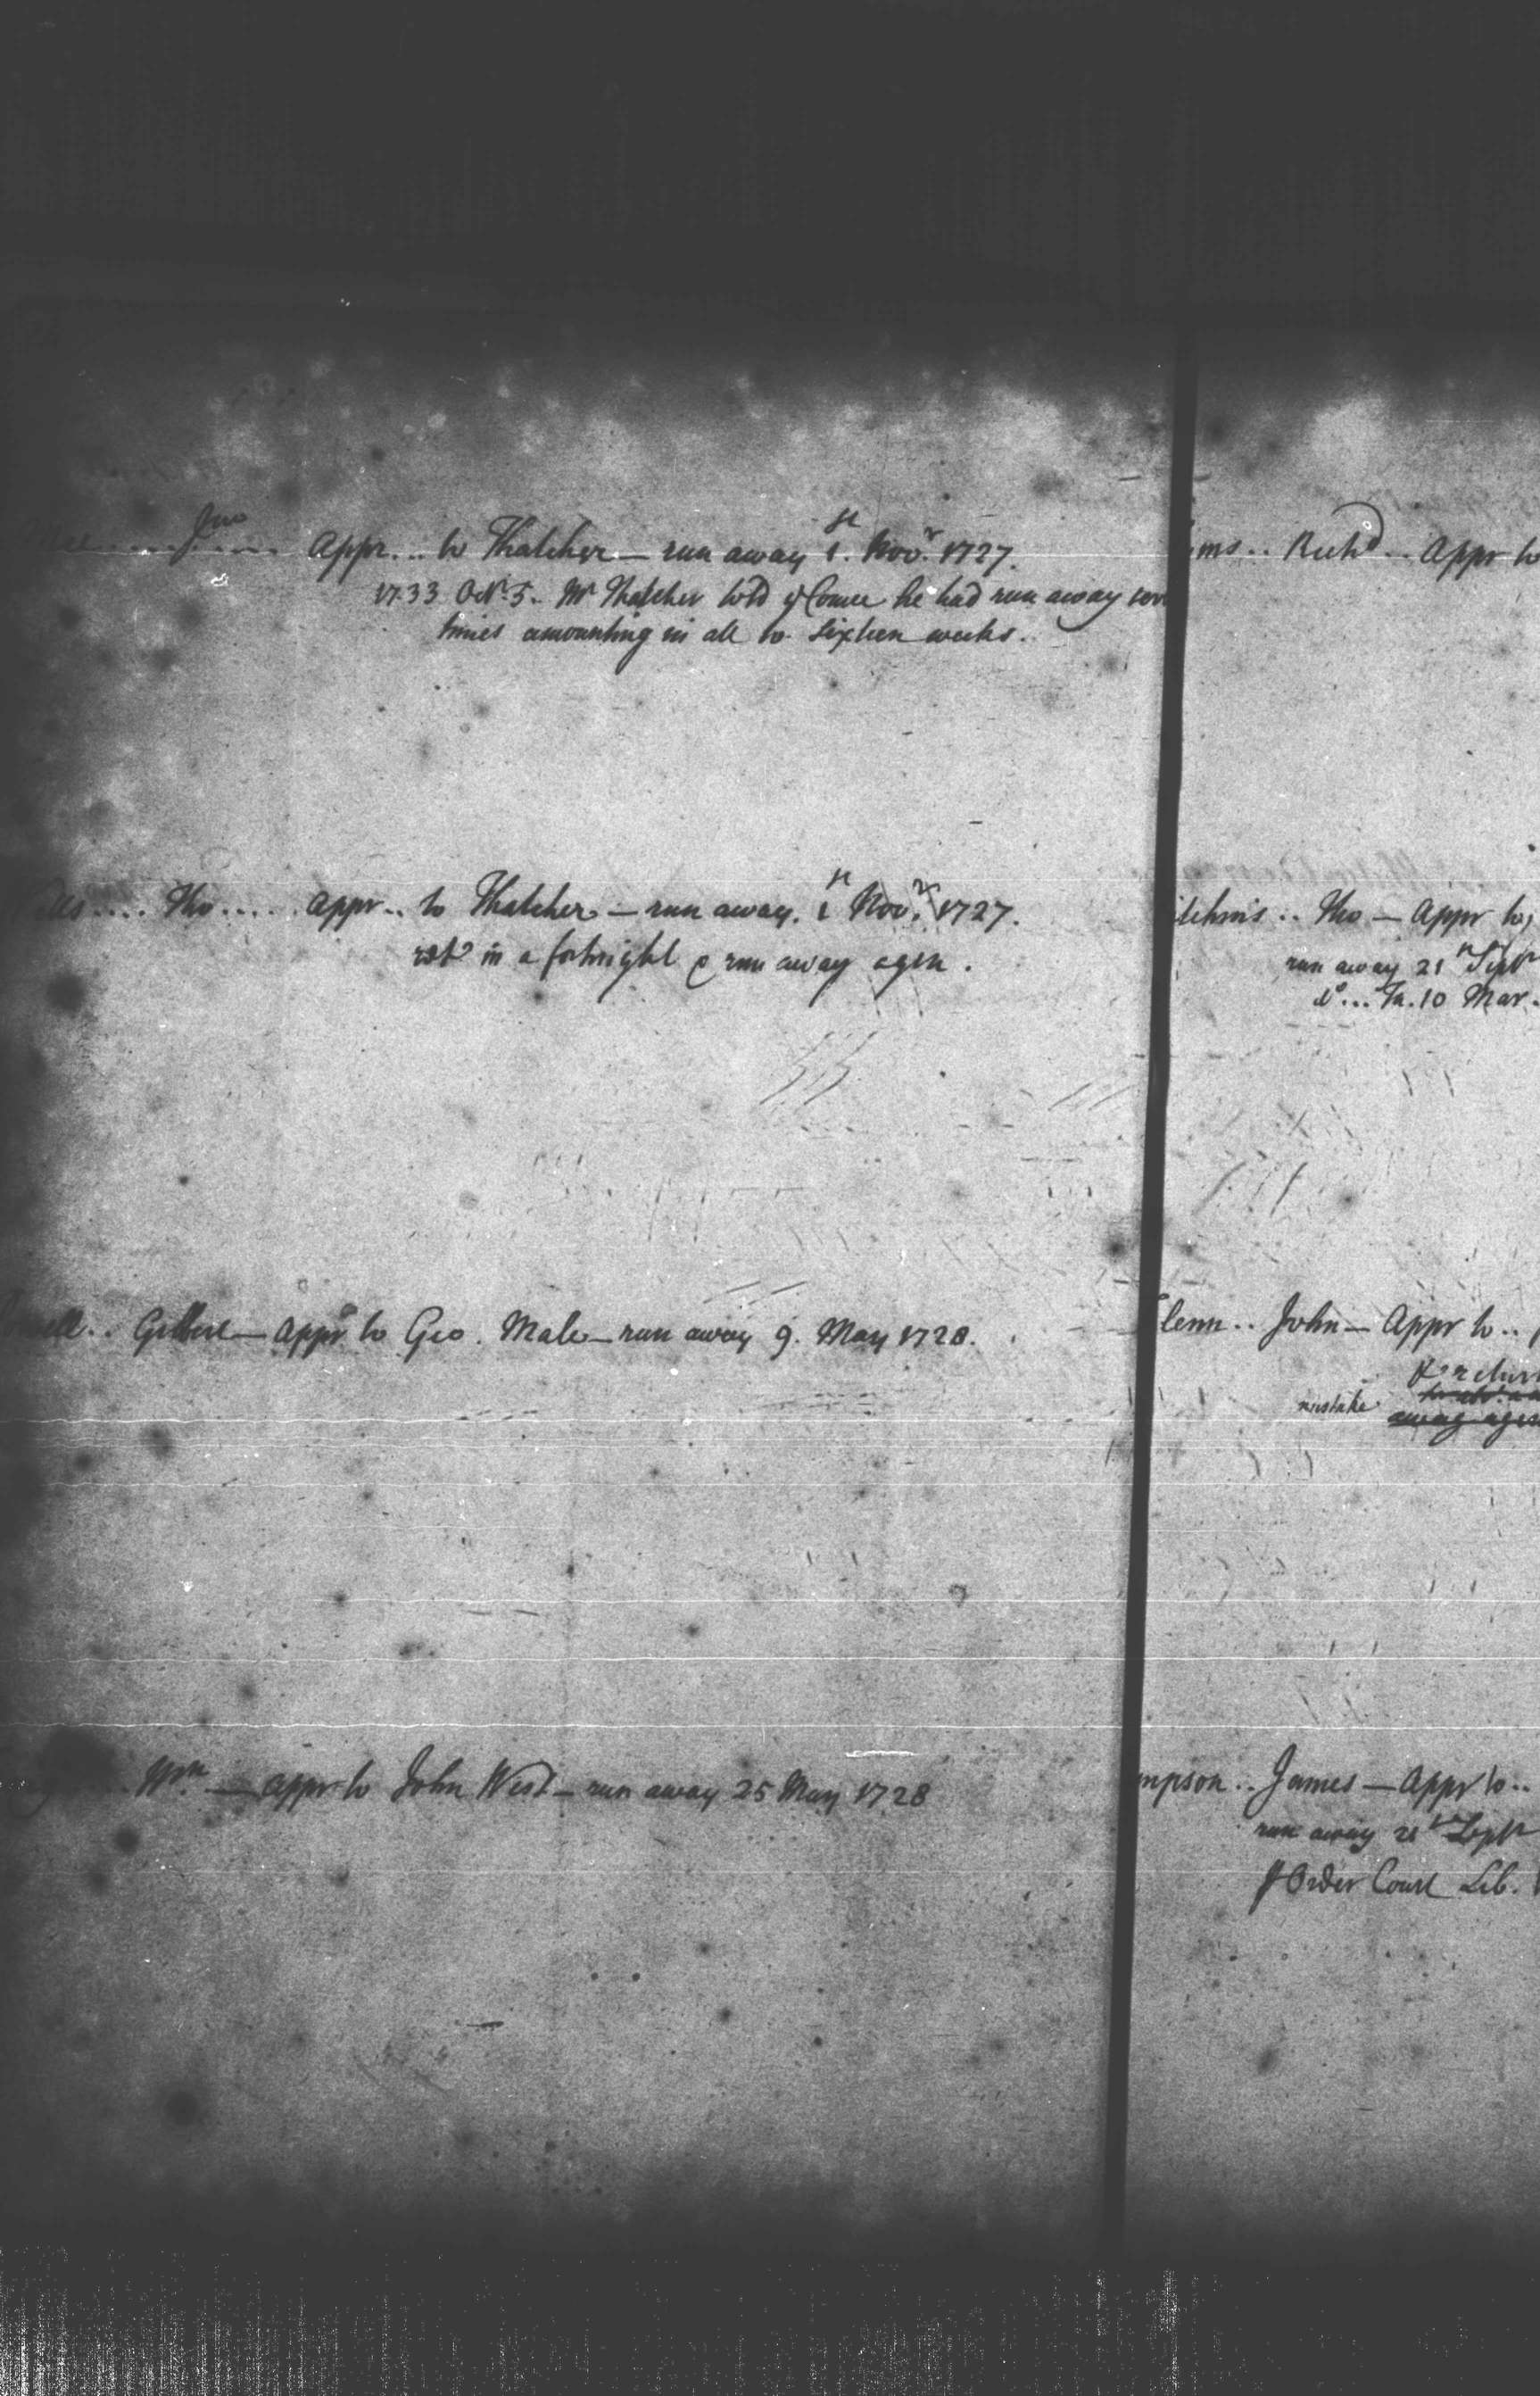 Jno Appr... to Thatcher — run away 1st. Novr. 1727.
1733 Oct. 5. Mr Thatcher told ye Comee he had run away
times amounting in all to sixteen weeks.
Tho.... Appr.. to Thatcher — run away. 1st Novr. 1727.
retd in a fortnight & run away agen.
Gilbert — Appr to Geo. Male — run away 9. May 1728.
Wm. — Appr to John West — run away 25 May 1728
ms.. Richd.. Appr to
itchins.. Tho — Appr to
run away 21st Sept
do... 10 Mar.
lenn.. John — Appr to..
mistake
away agen
mpson.. James — Appr to..
run away 21st Sept
Order Court Lib.